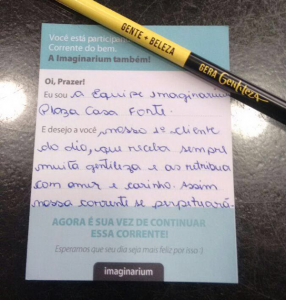 Você está participan
Corrente do bem.
A Imaginarium também!
GENTE + BELEZA
GERA Gentileza
Oi, Prazer!
Eu sou a Equipe Imaginarium
Plaza Casa Forte.
E desejo a você, nosso 1º cliente
do dia, que receba sempre
muita gentileza e as retribua
com amor e carinho. Assim
nossa corrente se perpetuará.
AGORA É SUA VEZ DE CONTINUAR
ESSA CORRENTE!
Esperamos que seu dia seja mais feliz por isso :)
imaginarium